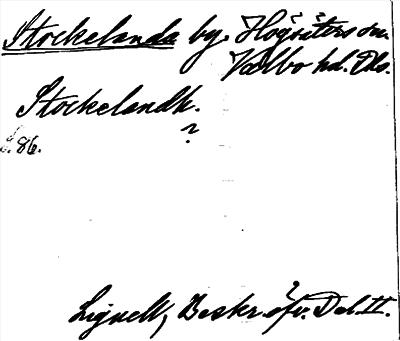 Stockelanda by. Högsäters sn.
Valbo hd. Dls.
Stockelandh.
?
s. 86.
Lignell, Beskr. öfv. Dal II.